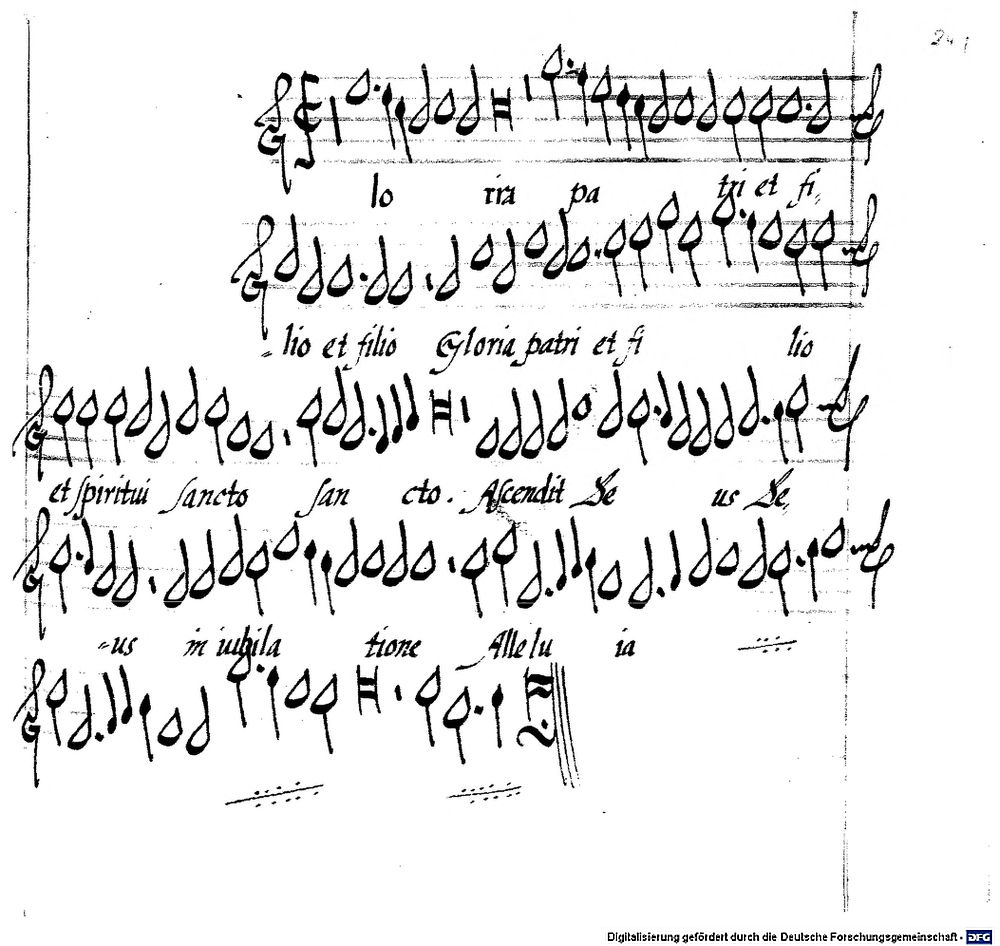 241
lo ria pa tri et fi,
lio et filio Gloria patri et fi lio
et spiritui sancto san cto. Ascendit De us De,
us in iubila tione Allelu ia
Digitalisierung gefördert durch die Deutsche Forschungsgemeinschaft - DFG